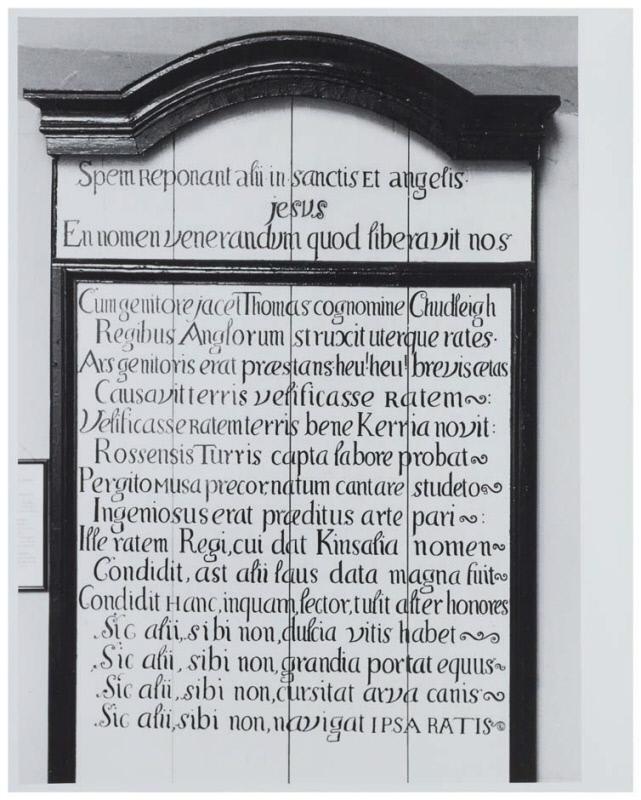 Spem Reponant alii in sanctis Et angelis.
jesus
En nomen venerandum quod liberavit nos
Cum genitore jacet Thomas cognomine Chudleigh
Regibus Anglorum struxit uterque rates.
Ars genitoris erat præstans heu! heu! brevis ætas
Causavit terris velificasse Ratem:
Velificasse Ratem terris bene Kerria novit:
Rossensis Turris capta labore probat
Pergito Musa precor, natum cantare studeto
Ingeniosus erat præditus arte pari:
Ille ratem Regi, cui dat Kinsalia nomen
Condidit, ast alii laus data magna fuit
Condidit Hanc, inquam, lector, tulit alter honores
Sic alii, sibi non, dulcia vitis habet
Sic alii, sibi non, grandia portat equus
Sic alii, sibi non, cursitat arva canis
Sic alii, sibi non, navigat IPSA RATIS